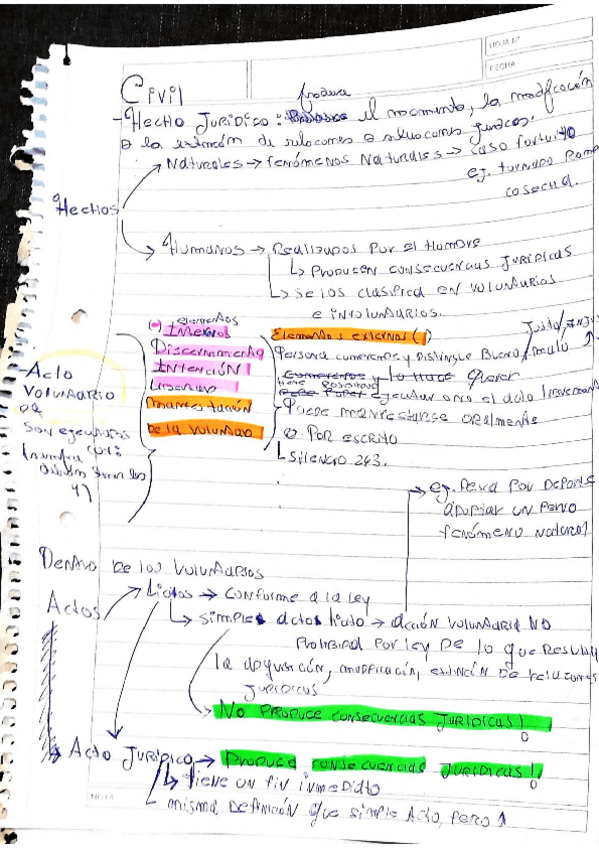 HOJA N°
FECHA
Civil
produce
- Hecho Jurídico: el nacimiento, la modificación
o la extinción de relaciones o situaciones jurídicas.
Naturales → fenómenos Naturales → caso fortuito
ej. turnado romp
cosecha.
Hechos
Humanos → Realizados por el Hombre
↳ Producen consecuencias Jurídicas
↳ se los clasifica en voluntarios
e involuntarios.
elementos
Internos
Elementos externos
Discernimiento
Persona comprende y Distingue Bueno/malo
Justo/
Intención
y lo hace Querer
- Acto
voluntario
Libertad
ejecutar o no el acto
Manifestación
- Puede manifestarse oralmente
De la voluntad
o Por escrito
Son ejecutados
↳ Silencio 263.
4)
→ ej. Pesca por Deporte
adoptar un perro
fenómeno natural
Dentro de los voluntarios
Actos
Lícitos → Conforme a la ley
↳ simples actos lícito → acción voluntaria NO
Prohibida por ley de lo que resulta
la adquisición, modificación, extinción de relaciones
Jurídicas
→ No produce consecuencias Jurídicas!
→ Acto Jurídico → Produce consecuencias Jurídicas!
↳ Tiene un fin inmediato
NOTA
↳ misma definición que simple Acto, pero ↑